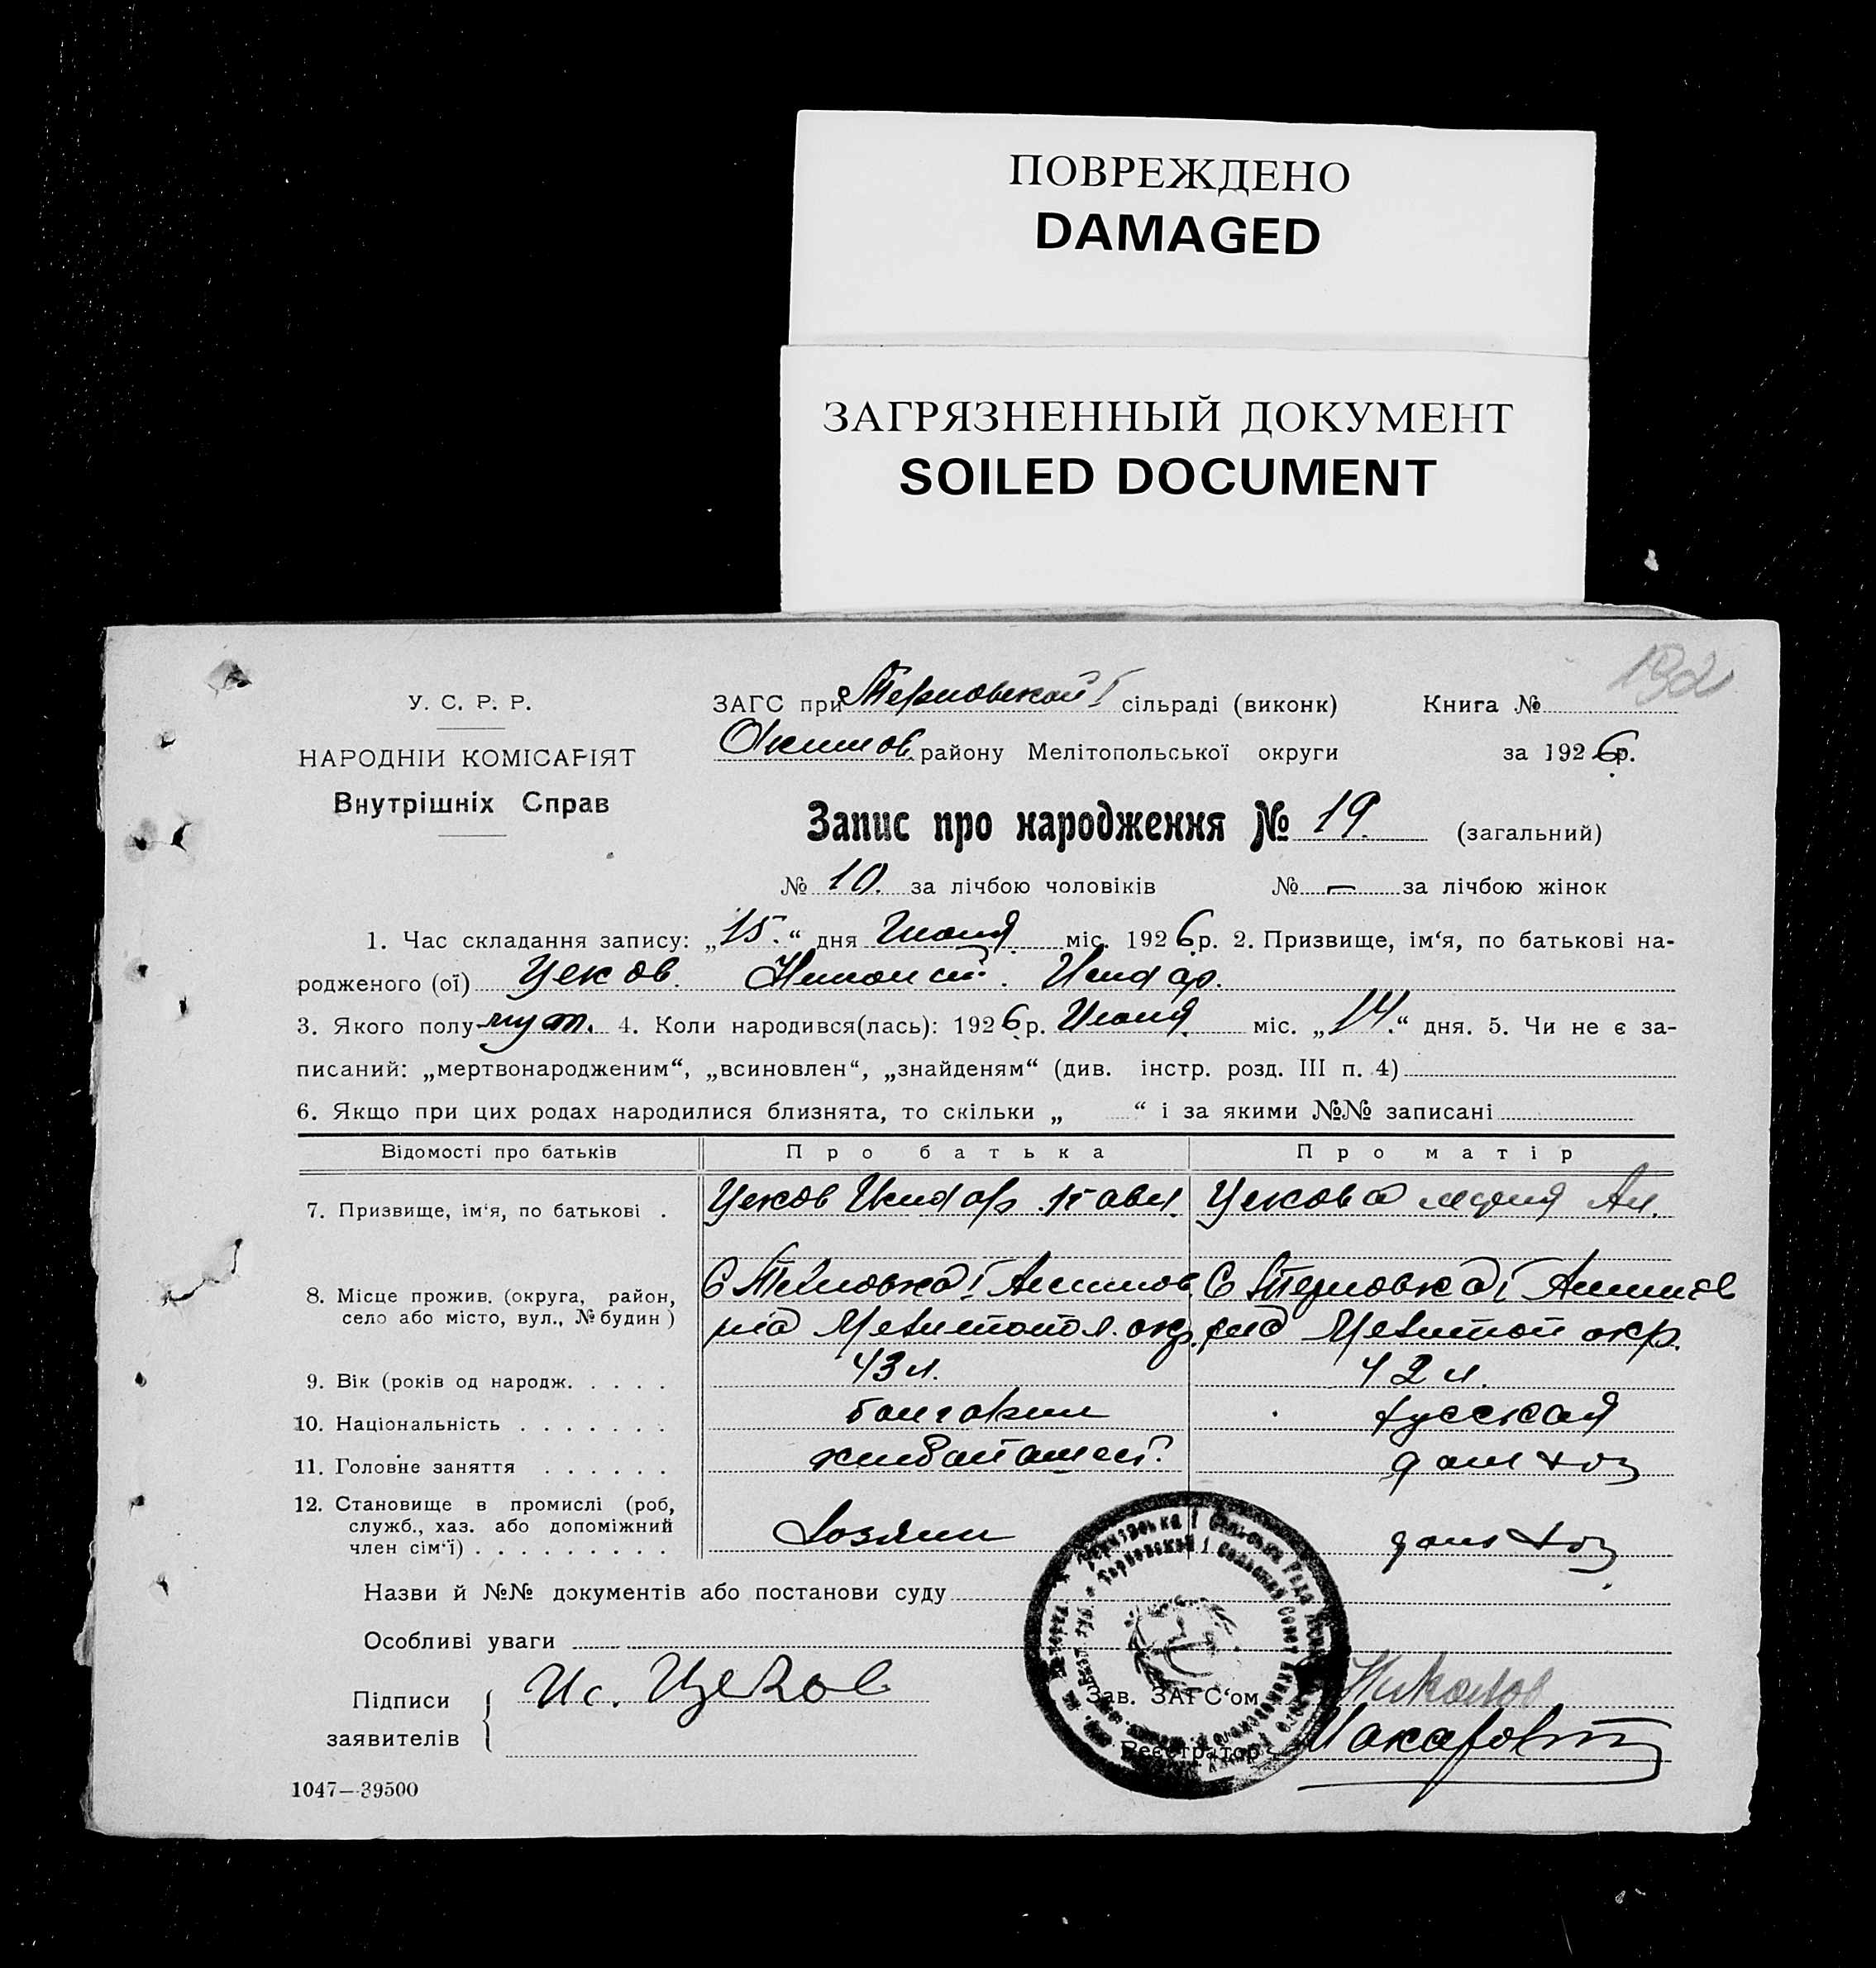 ПОВРЕЖДЕНО
DAMAGED
ЗАГРЯЗНЕННЫЙ ДОКУМЕНТ
SOILED DOCUMENT
192
У. С. Р. Р.
НАРОДНІЙ КОМІСАРІЯТ
Внутрішніх Справ
ЗАГС при Терновской I сільраді (виконк) Книга №
Окимов. району Мелітопольської округи за 1926 р.
Запис про народження № 19. (загальний)
№ 10. за лічбою чоловіків № – за лічбою жінок
1. Час складання запису: „15.“ дня Июня міс. 1926 р. 2. Призвище, ім‘я, по батькові на-
родженого (ої) Цеков. Исидор.
3. Якого полу муж. 4. Коли народився(лась): 1926 р. Июня. міс. „14.“ дня. 5. Чи не є за-
писаний: „мертвонародженим“, „всиновлен“, „знайденям“ (див. інстр. розд. III п. 4)
6. Якщо при цих родах народилися близнята, то скільки „ “ і за якими №№ записані
Відомості про батьків Про батька Про матір
7. Призвище, ім‘я, по батькові . Цеков Исидор Павл. Цекова Ан.
8. Місце прожив. (округа, район, село або місто, вул., № будин) С Терновка I Акимов С Терновка I Акимов
рна Мелитопол. окр. рна Мелитоп окр.
9. Вік (років од народж. . . . . 43 л. 42 л.
10. Національність . . . . . . . болгарин русская
11. Головне заняття . . . . . . хлебопашест. дом хоз
12. Становище в промислі (роб, служб., хаз. або допоміжний член сім‘ї) . . . . . . . . . Хозяин дом хоз
Назви й №№ документів або постанови суду
Особливі уваги
Підписи заявителів Ис. Цеков
Зав. ЗАГС‘ом Николов
Реєстратор Макарович
1047—39500